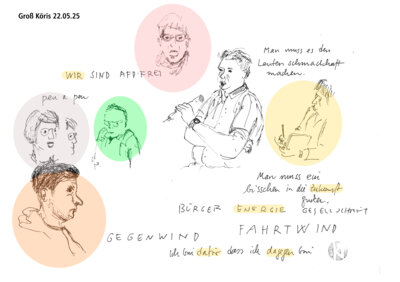 Groß Köris 22.05.25
WIR SIND AFD-FREI
Man muss es den
Leuten schmackhaft
machen.
peu a peu
Man muss ein
bisschen in die Zukunft
gucken.
BÜRGER ENERGIE GESELLSCHAFT
GEGENWIND FAHRTWIND
Ich bin dafür dass ich dagegen bin